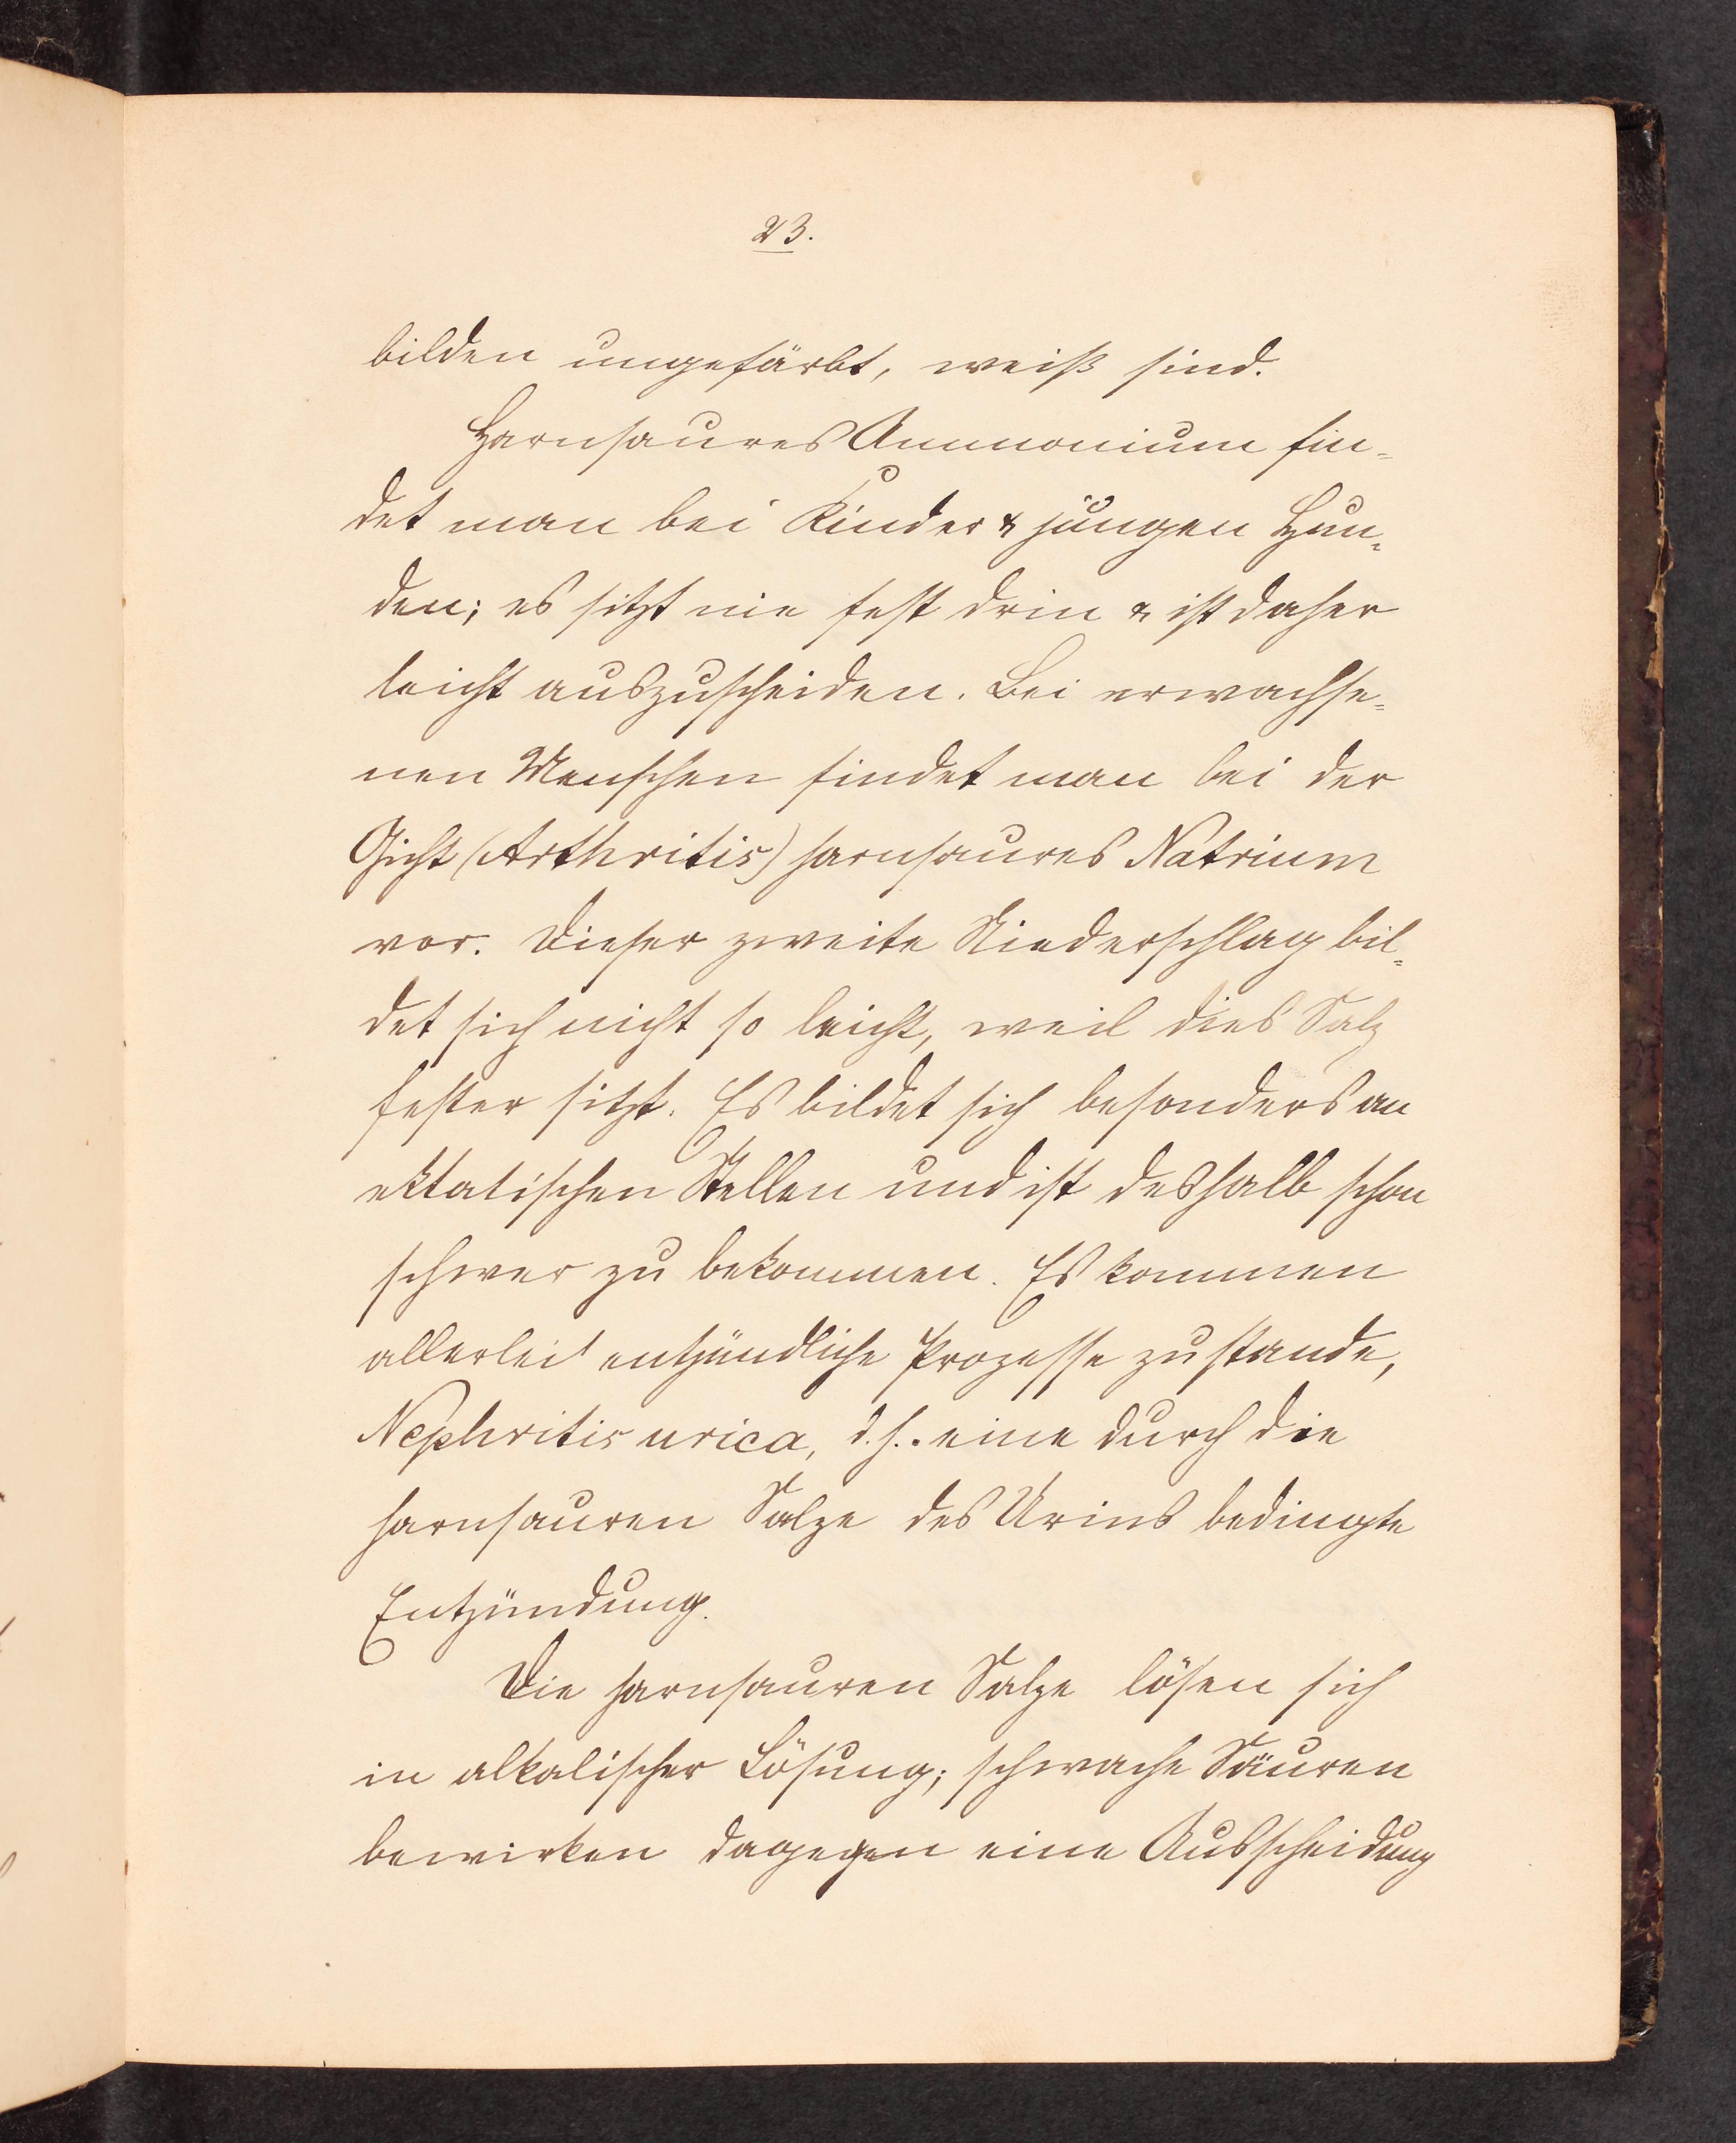 23.
bilden ungefärbt, weiß sind.
Harnsaures Ammonium fin-
det man bei Kinder & jungen Hun-
den; es sitzt nie fest drin & ist daher
leicht auszuscheiden. Bei erwachse-
nen Menschen findet man bei der
Gicht (Arthritis) harnsaures Natrium
vor. Dieser zweite Niederschlag bil-
det sich nicht so leicht, weil dies Salz
fester sitzt. Es bildet sich besonders an
ektatischen Stellen und ist deshalb schon
schwer zu bekommen. Es kommen
allerlei entzündliche Prozesse zustande,
Nephritis urica, d.h. eine durch die
harnsauren Salze des Urins bedingte
Entzündung.
Die harnsauren Salze lösen sich
in alkalischer Lösung; schwache Säuren
bewirken dagegen eine Ausscheidung